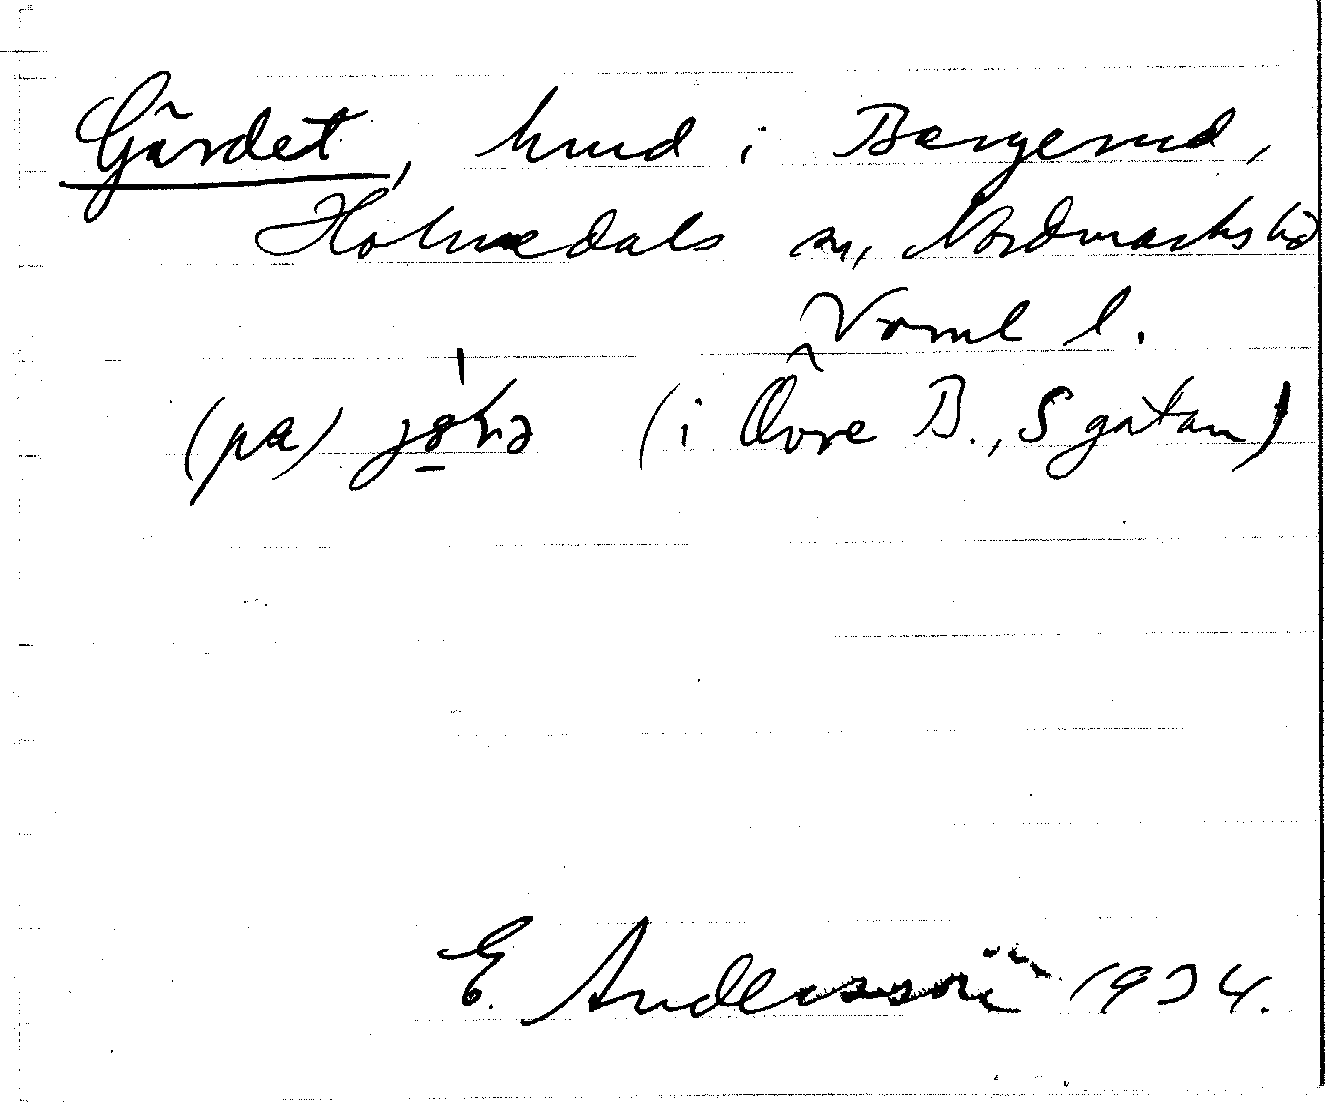 Gärdet, hmd i Bergerud,
Holmedals sn, Nordmarks hd
Vrml l.
(på) jø̱̍ḷə (i Övre B., S gatan)
E. Andersson 1934.